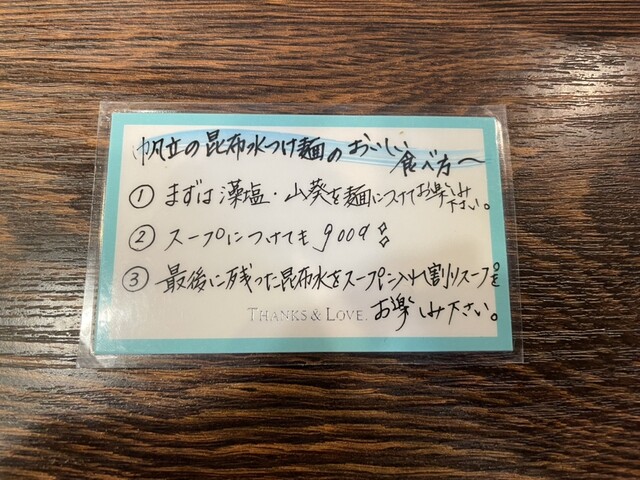 帆立の昆布水つけ麺のおいしい食べ方〜
① まずは藻塩・山葵を麺につけてお楽しみ下さい。
② スープにつけても good
③ 最後に残った昆布水をスープに入れて割りスープをお楽しみ下さい。
THANKS & LOVE.